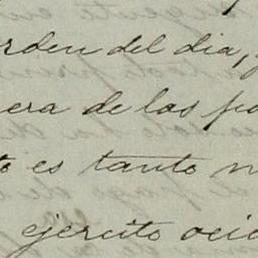 rden del dia,
era de las po
to es tanto m
ejercito ocio